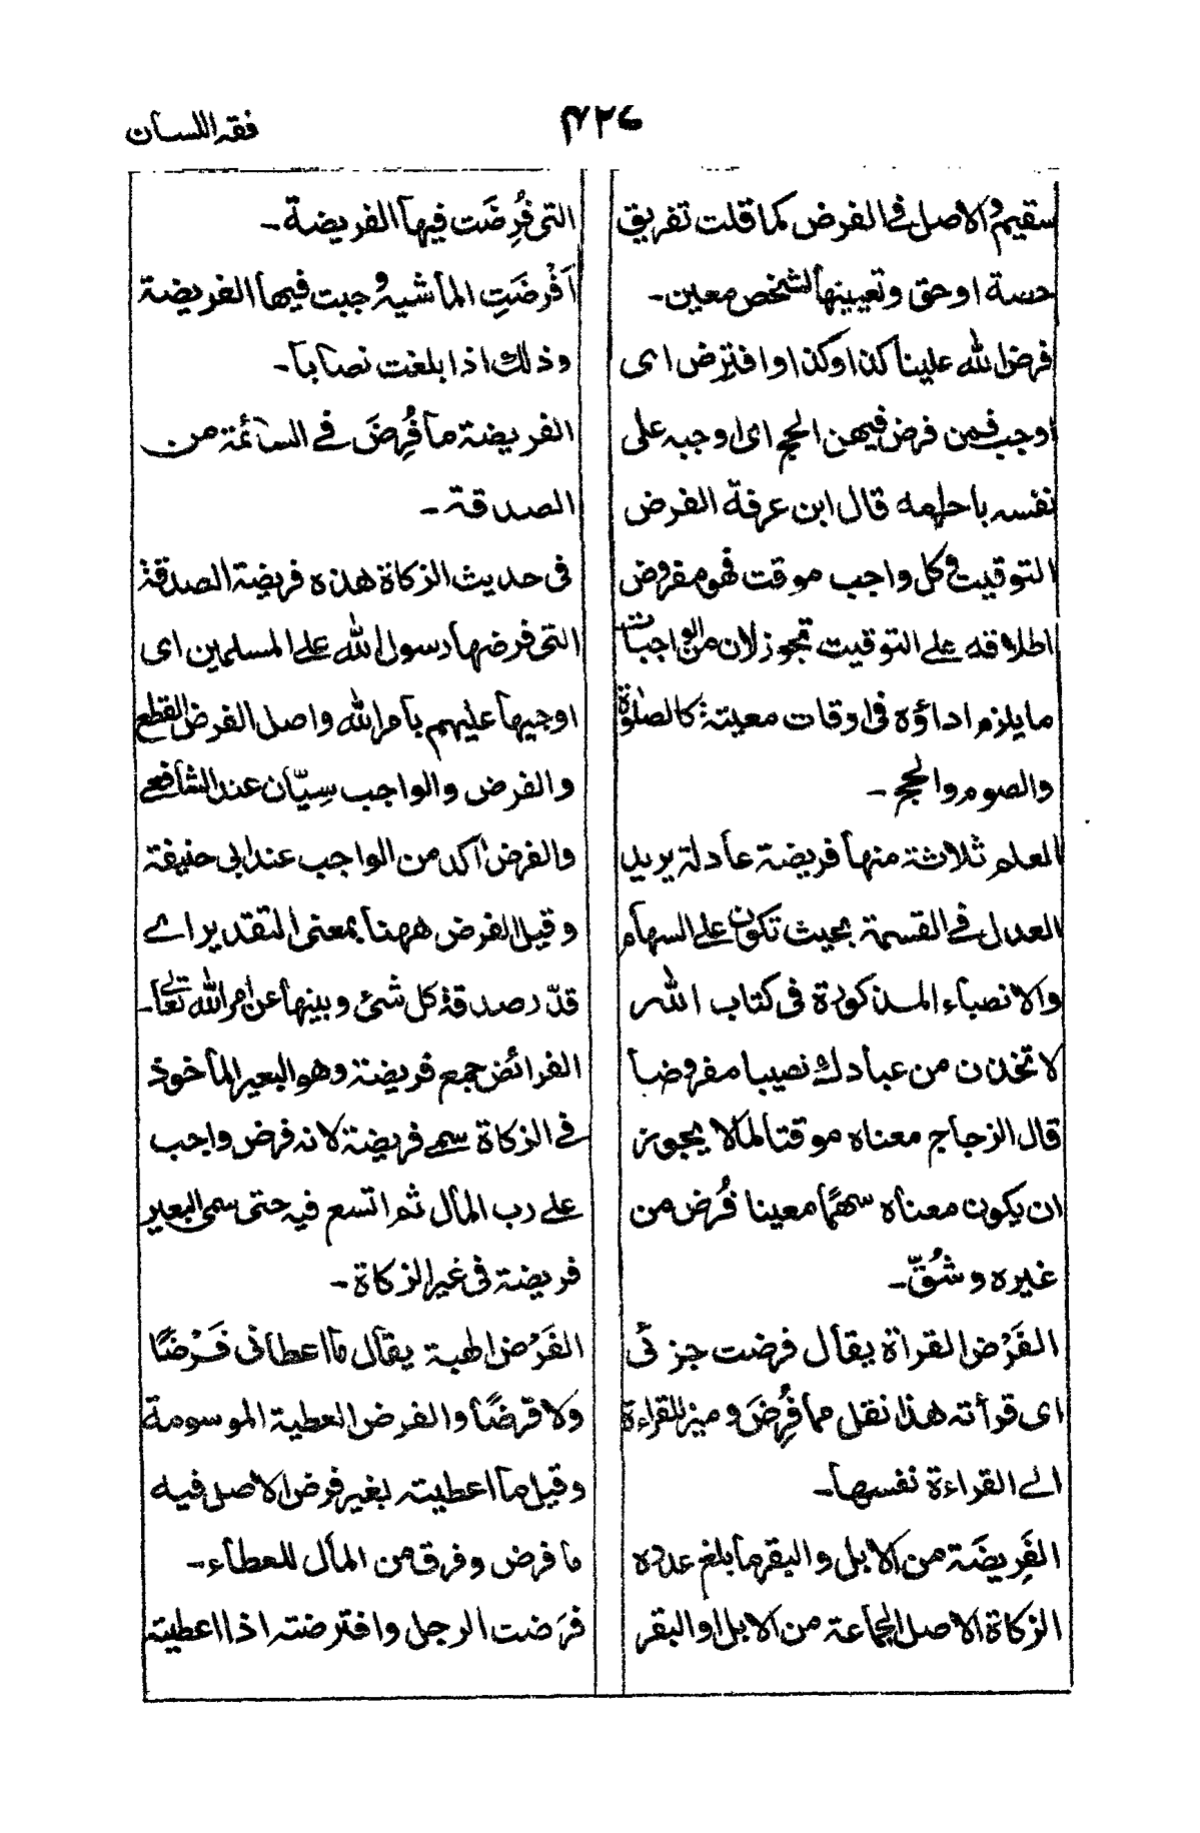 فقه اللسان
سقيم والاصل فى الفرض كما قلت تفريق
حصة او حق وتعيينها لشخص معين۔
فرض الله علينا كذا وكذا وافترض اى
اوجب فمن فرض فيهن الحج اى اوجبه على
نفسه باحرامه قال ابن عرفة الفرض
التوقيت وكل واجب موقت فهو مفروض
اطلاقه على التوقيت تجوز لان من الواجبات
ما يلزم اداؤه فى اوقات معينة كالصلوٰة
والصوم والحج۔
العلم ثلاثة منها فريضة عادلة يريد
العدل فى القسمة بحيث تكون على السهام
والانصباء المذكورة فى كتاب الله
لاتخذن من عبادك نصيبا مفروضا
قال الزجاج معناه موقتا لما لا يجوز
ان يكون معناه سهمًا معينا فُرض من
غيره وشُقّ۔
الفَرْض القراة يقال فرضت جزئى
اى قرأته هذا نقل مما فُرِضَ وميز للقراءة
الى القراءة نفسها۔
الفَرِيضَة من الابل والبقر ما بلغ عدده
الزكاة الاصل الجماعة من الابل او البقر
التى فُرِضَت فيها الفريضة۔
اَفْرضَتِ الماشية وجبت فيها الفريضة
وذلك اذا بلغت نصابا۔
الفريضة ما فُرِضَ فى السائمة من
الصدقة۔
فى حديث الزكاة هذه فريضة الصدقة
التى فرضها رسول الله على المسلمين اى
اوجبها عليهم بامر الله واصل الفرض القطع
والفرض والواجب سِيّان عند الشافعى
والفرض آكد من الواجب عند ابى حنيفة
وقيل الفرض ههنا بمعنى التقدير اى
قدّر صدقة كل شئ وبينها عن امر الله تعالى۔
الفرائض جمع فريضة وهو البعير الماخوذ
فى الزكاة سمى فريضة لانه فرض واجب
على رب المال ثم اتسع فيه حتى سمى البعير
فريضة فى غير الزكاة۔
الفَرْض الهبة يقال ما اعطانى فَرْضًا
ولا قرضًا والفرض العطية الموسومة
وقيل ما اعطيته بغير قرض الاصل فيه
ما فرض وفرق من المال للعطاء۔
فرَضت الرجل وافترضته اذا اعطيته